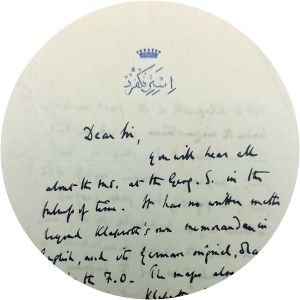 استرنكفرد
Dear Sir,
You will hear all
about the MS. at the Geog. S. in the
fulness of time. It has no written matter
beyond Klaproth's own memorandum in
English, and its German original,
the F.O. The maps
Klaproth